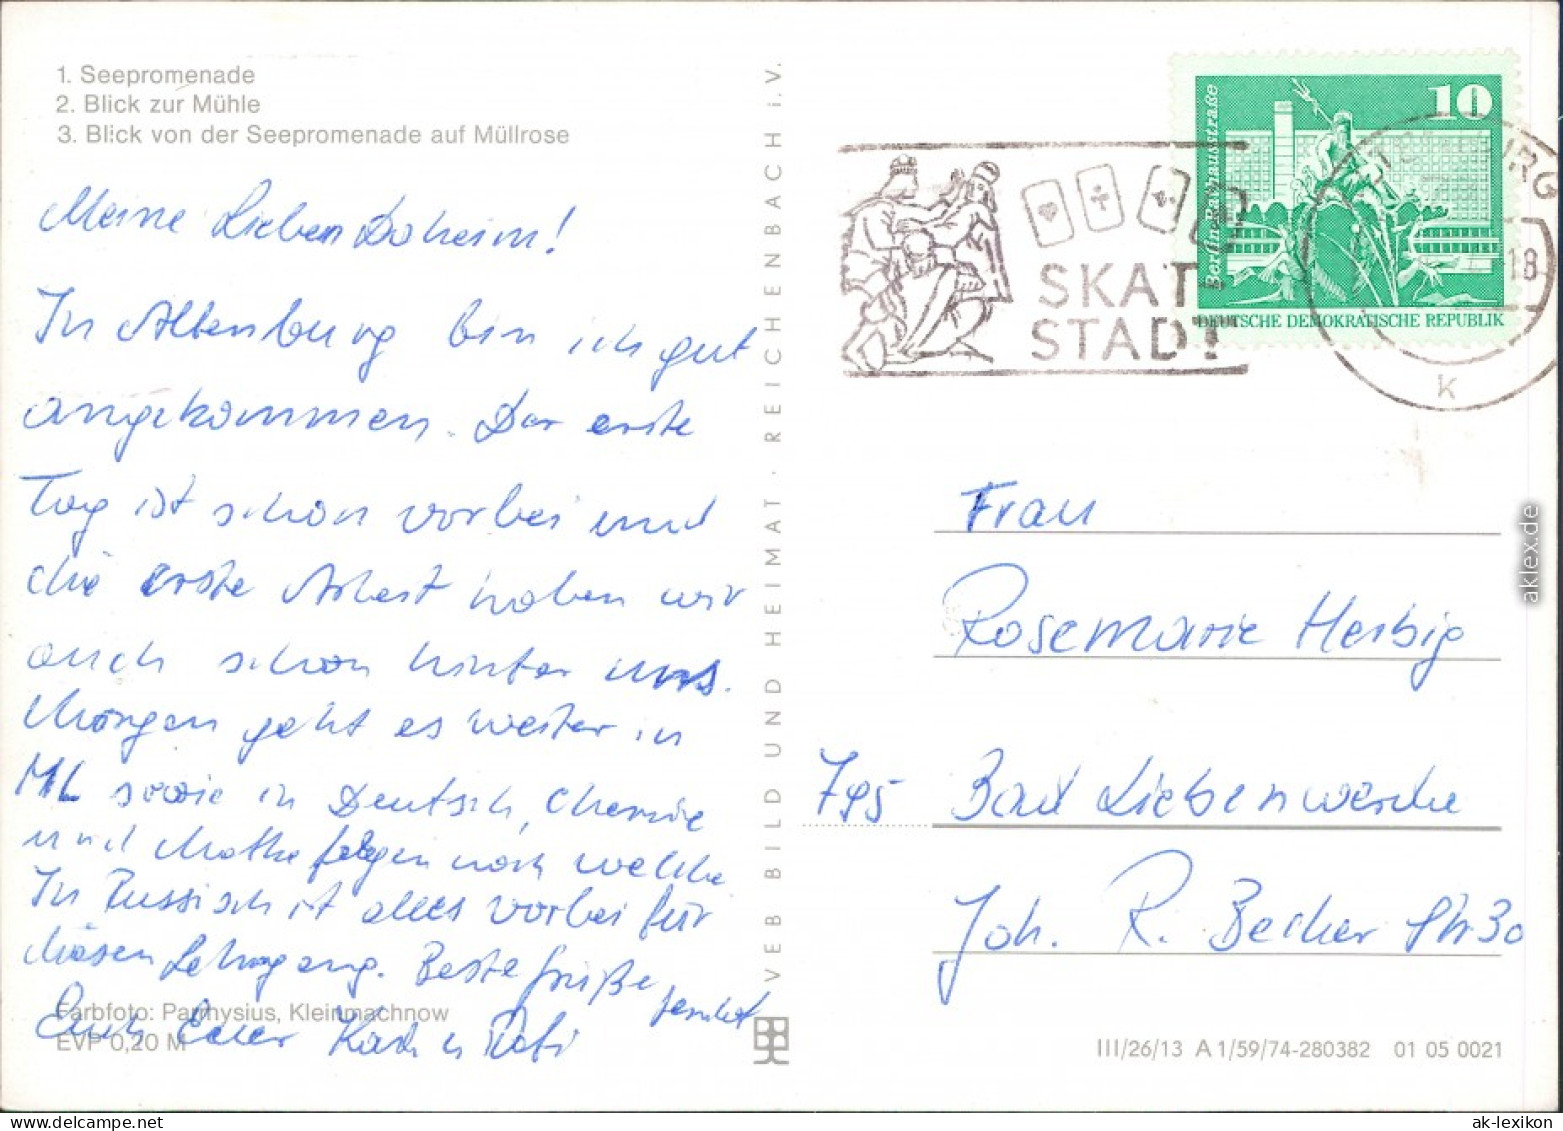 1. Seepromenade
2. Blick zur Mühle
3. Blick von der Seepromenade auf Müllrose
Meine Lieben Daheim!
In Altenburg bin ich gut
angekommen. Der erste
Tag ist schon vorbei und
die erste Arbeit haben wir
auch schon hinter uns.
Morgen geht es weiter in
ML sowie in Deutsch, Chemie
und Mathe folgen noch welche
In Russisch ist alles vorbei für
diesen Lehrgang. Beste Grüße
sendet
Euch Euer
Farbfoto: Parthysius, Kleinmachnow
EVP 0,20 M
VEB BILD UND HEIMAT · REICHENBACH i. V.
SKAT-
STADT
10
Berlin-Rathausstraße
DEUTSCHE DEMOKRATISCHE REPUBLIK
18
k
Frau
Rosemarie Herbig
795 Bad Liebenwerda
Joh. R. Becher Str 30
III/26/13 A 1/59/74-280382 01 05 0021
aklex.de
ak-lexikon